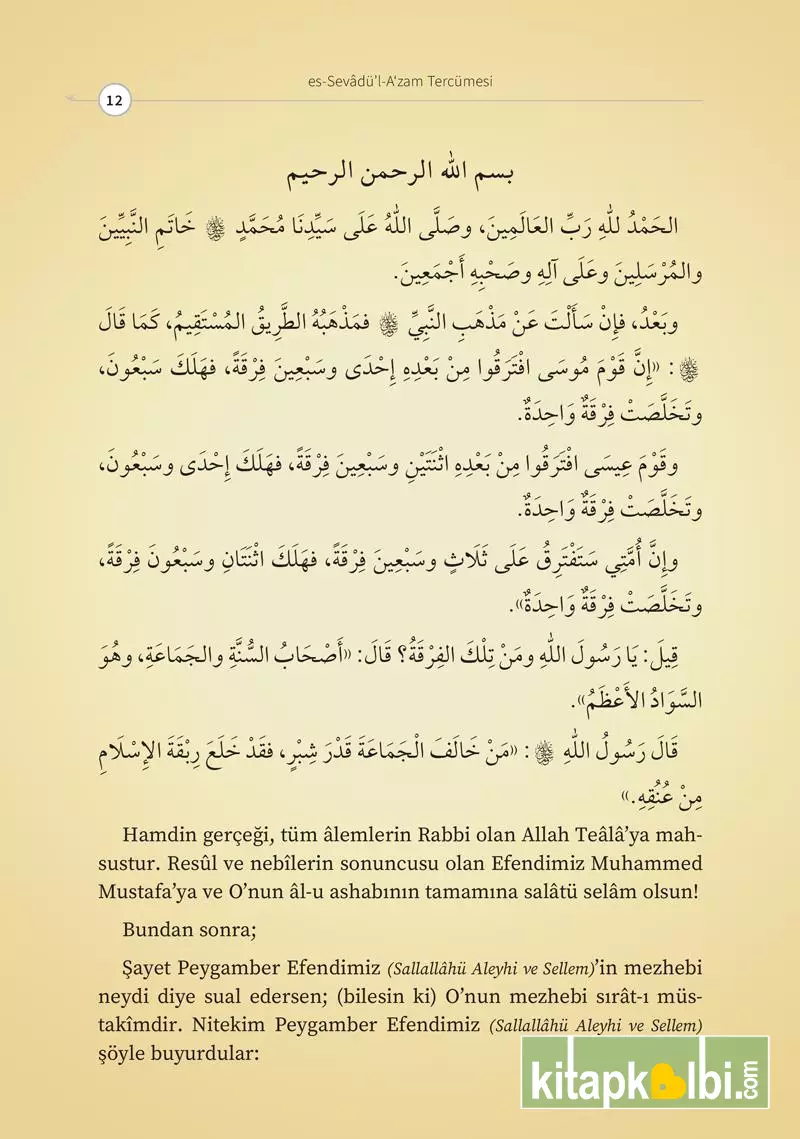 es-Sevâdü’l-A‘zam Tercümesi
12
بسم الله الرحمن الرحيم
الحَمْدُ للهِ رَبِّ العَالَمِينَ، وصَلَّى اللهُ عَلَى سَيِّدِنَا مُحَمَّدٍ ﷺ خَاتَمِ النَّبِيِّينَ
والمُرْسَلِينَ وعَلَى آلِهِ وصَحْبِهِ أَجْمَعِينَ.
وبَعْدُ، فإِنْ سَأَلْتَ عَنْ مَذْهَبِ النَّبِيِّ ﷺ فمَذْهَبُهُ الطَّرِيقُ المُسْتَقِيمُ، كَمَا قَالَ
ﷺ: «إِنَّ قَوْمَ مُوسَى افْتَرَقُوا مِنْ بَعْدِهِ إِحْدَى وسَبْعِينَ فِرْقَةً، فهَلَكَ سَبْعُونَ،
وتَخَلَّصَتْ فِرْقَةٌ وَاحِدَةٌ.
وقَوْمَ عِيسَى افْتَرَقُوا مِنْ بَعْدِهِ اثْنَتَيْنِ وسَبْعِينَ فِرْقَةً، فهَلَكَ إِحْدَى وسَبْعُونَ،
وتَخَلَّصَتْ فِرْقَةٌ وَاحِدَةٌ.
وإِنَّ أُمَّتِي سَتَفْتَرِقُ عَلَى ثَلَاثٍ وسَبْعِينَ فِرْقَةً، فهَلَكَ اثْنَتَانِ وسَبْعُونَ فِرْقَةً،
وتَخَلَّصَتْ فِرْقَةٌ وَاحِدَةٌ».
قِيلَ: يَا رَسُولَ اللهِ ومَنْ تِلْكَ الفِرْقَةُ؟ قَالَ: «أَصْحَابُ السُّنَّةِ والجَمَاعَةِ، وهُوَ
السَّوَادُ الأَعْظَمُ».
قَالَ رَسُولُ اللهِ ﷺ: «مَنْ خَالَفَ الْجَمَاعَةَ قَدْرَ شِبْرٍ، فقَدْ خَلَعَ رِبْقَةَ الإِسْلَامِ
مِنْ عُنُقِهِ.»
Hamdin gerçeği, tüm âlemlerin Rabbi olan Allah Teâlâ’ya mah-
sustur. Resûl ve nebîlerin sonuncusu olan Efendimiz Muhammed
Mustafa’ya ve O’nun âl-u ashabının tamamına salâtü selâm olsun!
Bundan sonra;
Şayet Peygamber Efendimiz (Sallallâhü Aleyhi ve Sellem)’in mezhebi
neydi diye sual edersen; (bilesin ki) O’nun mezhebi sırât-ı müs-
takîmdir. Nitekim Peygamber Efendimiz (Sallallâhü Aleyhi ve Sellem)
şöyle buyurdular:
kitapkalbi.com